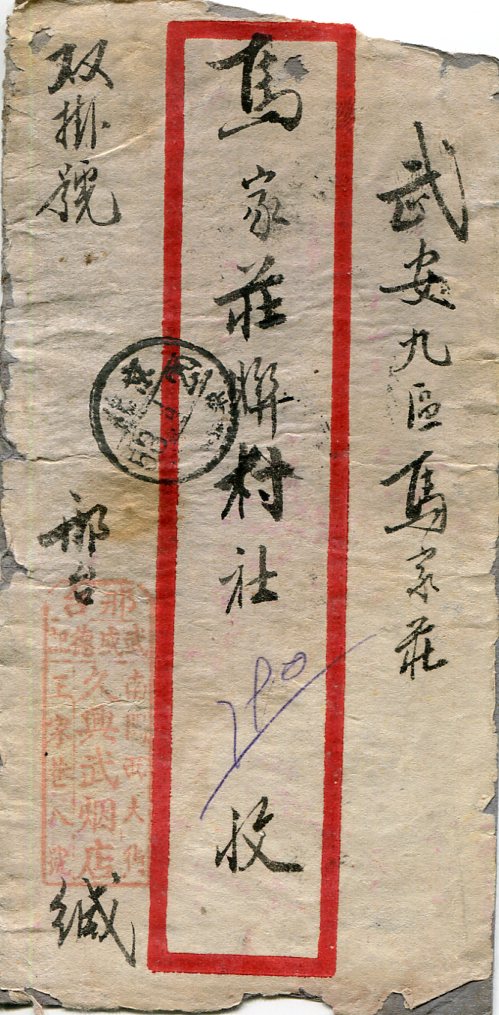 武安九區馬家莊
馬家莊聯村社 收
双掛號
邢台 緘
邢台
南門西大街
久興武烟店
王家巷八號